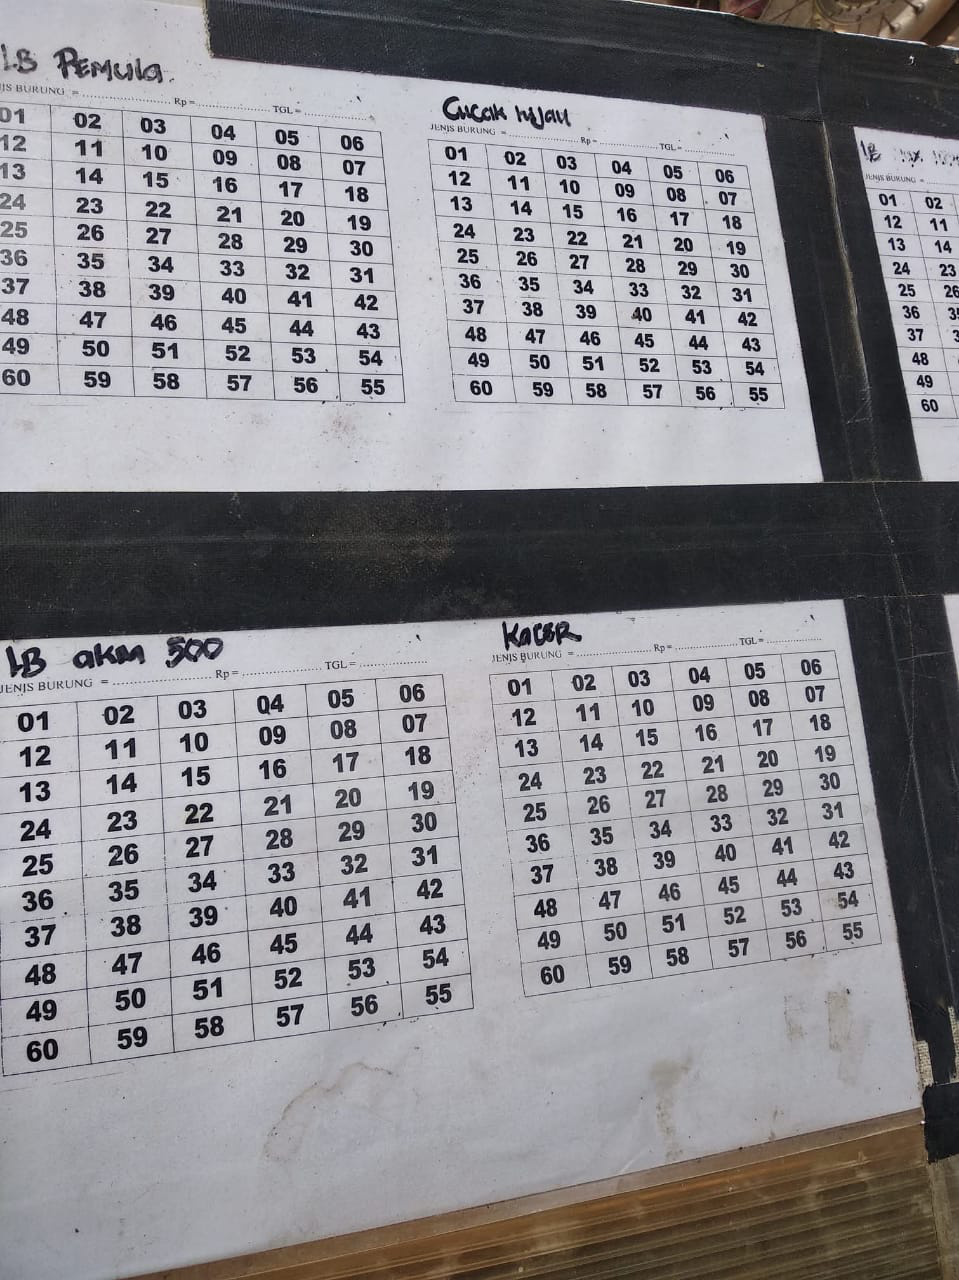 LB PEMULA
JENIS BURUNG = Rp = TGL =
01 02 03 04 05 06
12 11 10 09 08 07
13 14 15 16 17 18
24 23 22 21 20 19
25 26 27 28 29 30
36 35 34 33 32 31
37 38 39 40 41 42
48 47 46 45 44 43
49 50 51 52 53 54
60 59 58 57 56 55
Cucak hijau
JENIS BURUNG = Rp = TGL =
01 02 03 04 05 06
12 11 10 09 08 07
13 14 15 16 17 18
24 23 22 21 20 19
25 26 27 28 29 30
36 35 34 33 32 31
37 38 39 40 41 42
48 47 46 45 44 43
49 50 51 52 53 54
60 59 58 57 56 55
LB
JENIS BURUNG =
01 02
12 11
13 14
24 23
25 26
36
37
48
49
60
LB akm 500
JENIS BURUNG = Rp = TGL =
01 02 03 04 05 06
12 11 10 09 08 07
13 14 15 16 17 18
24 23 22 21 20 19
25 26 27 28 29 30
36 35 34 33 32 31
37 38 39 40 41 42
48 47 46 45 44 43
49 50 51 52 53 54
60 59 58 57 56 55
KACER
JENIS BURUNG = Rp = TGL =
01 02 03 04 05 06
12 11 10 09 08 07
13 14 15 16 17 18
24 23 22 21 20 19
25 26 27 28 29 30
36 35 34 33 32 31
37 38 39 40 41 42
48 47 46 45 44 43
49 50 51 52 53 54
60 59 58 57 56 55